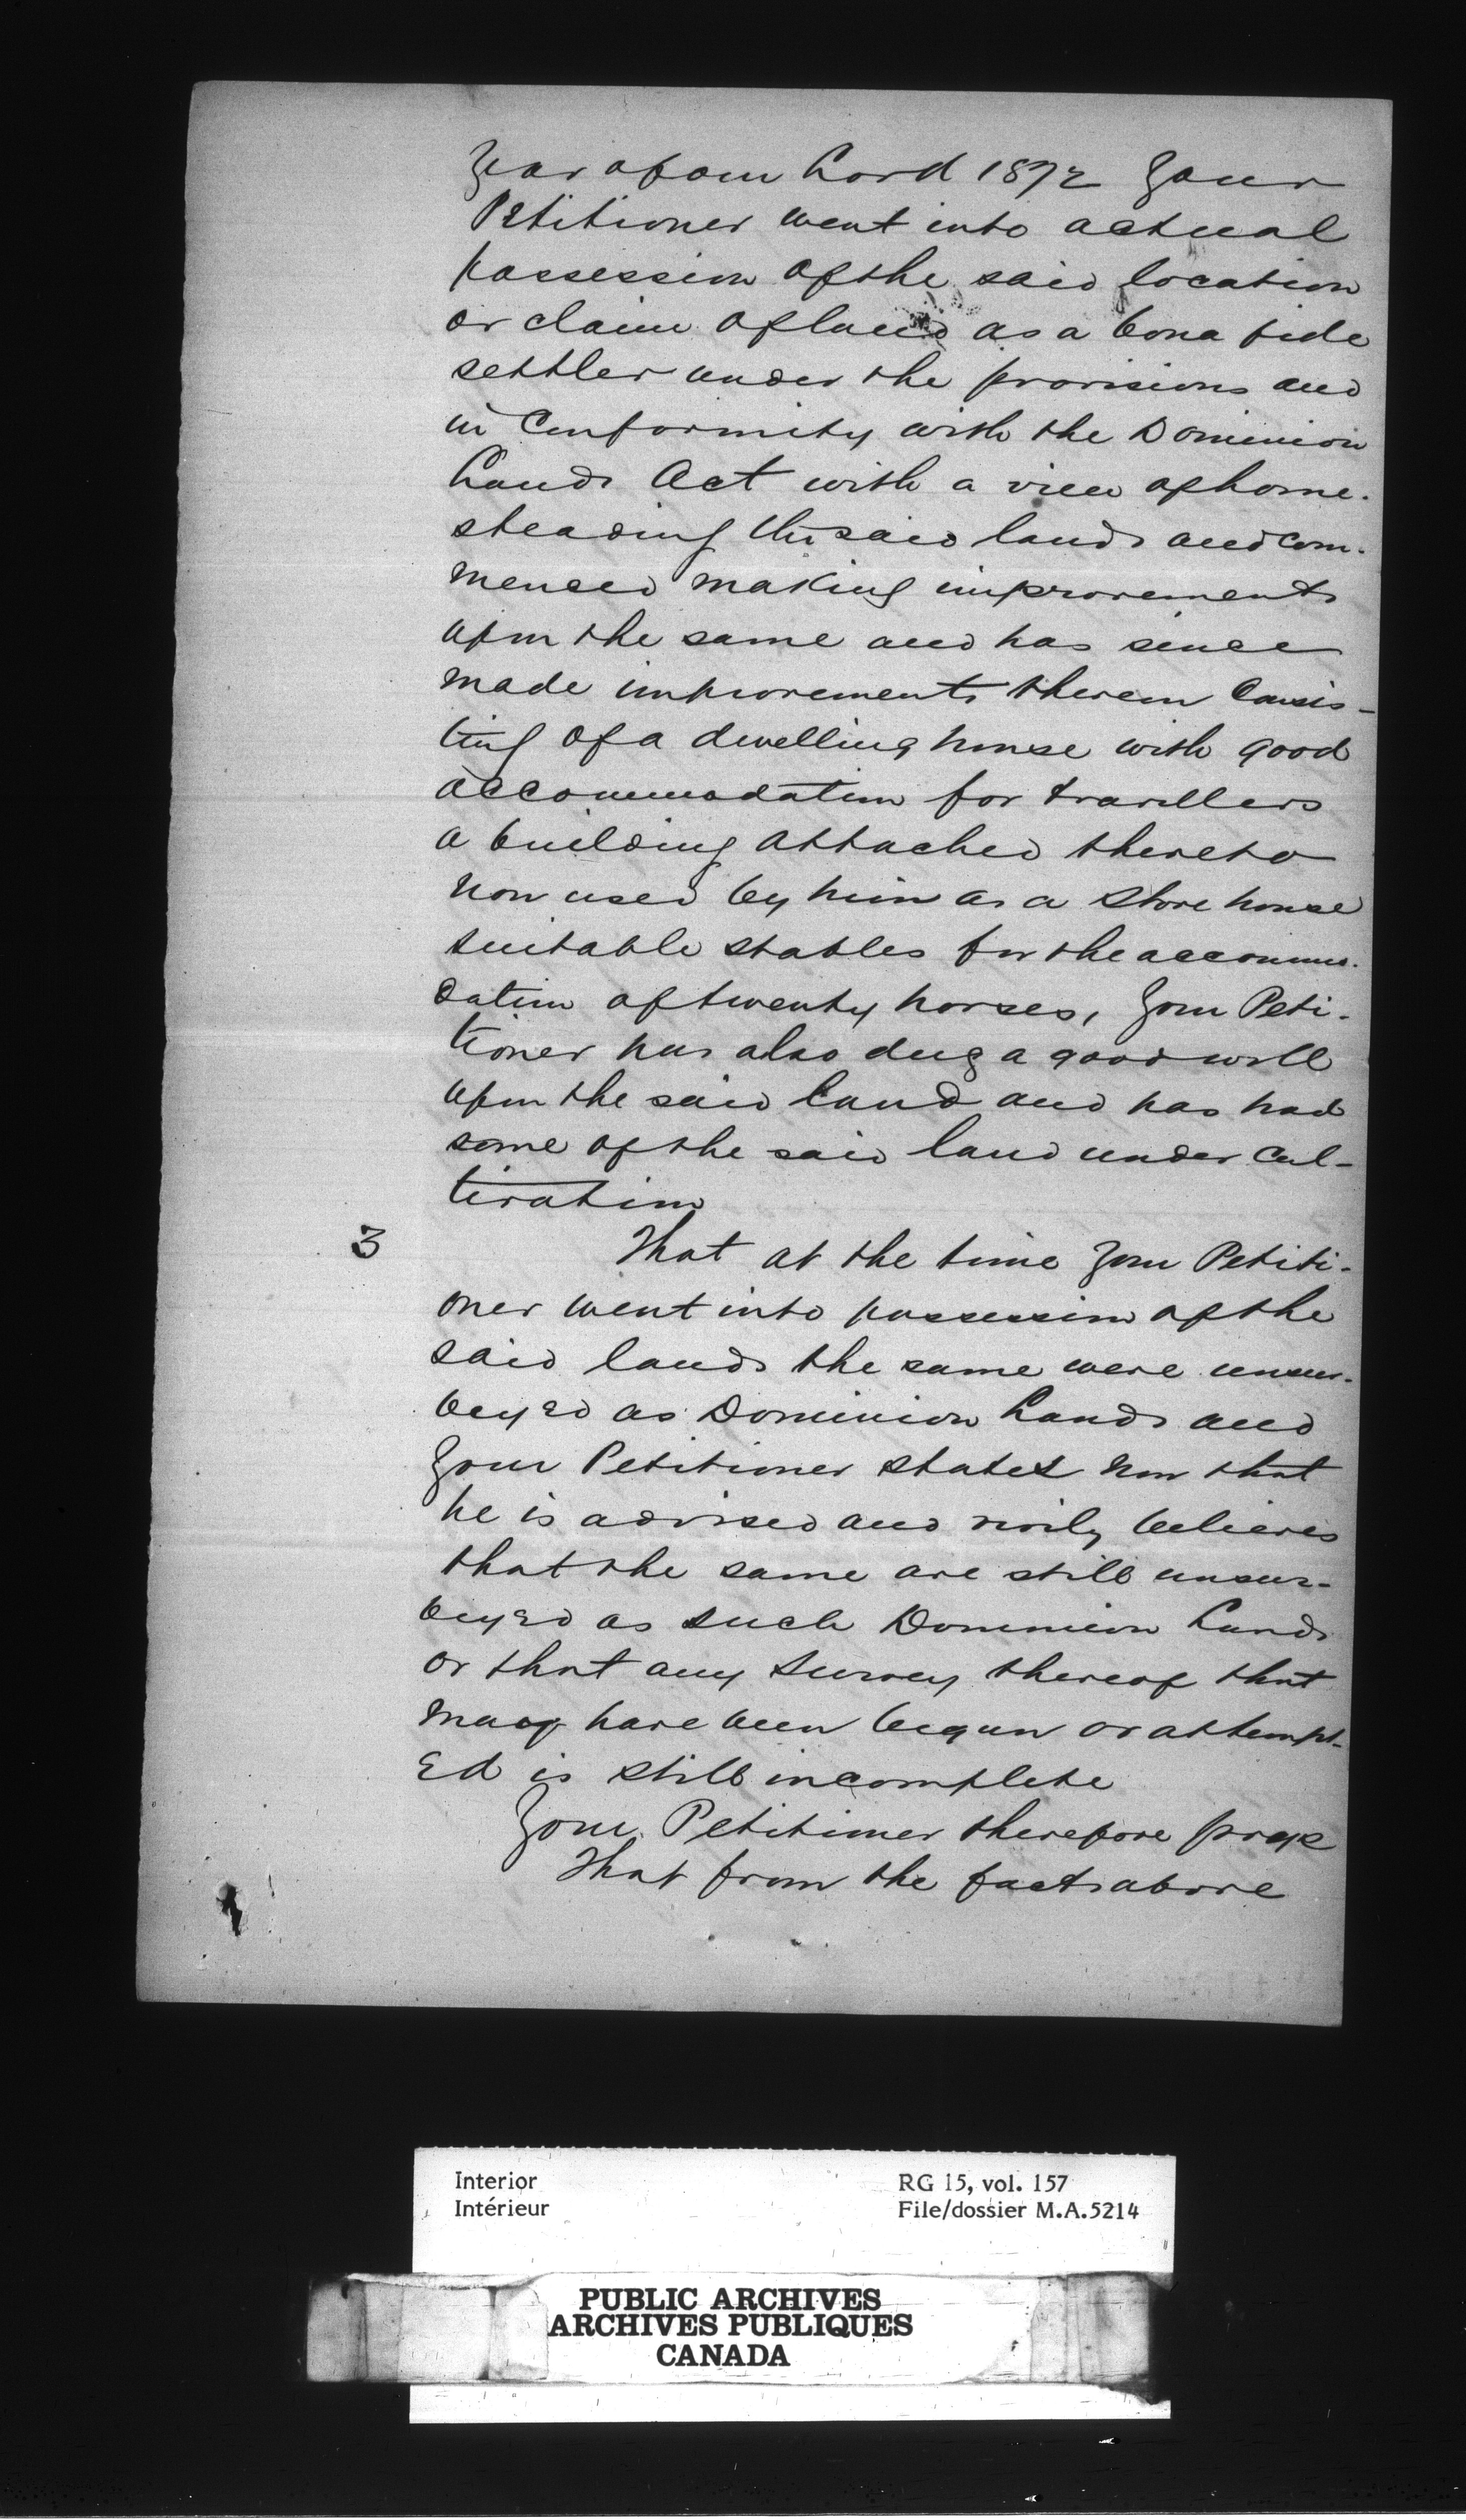 Year of our Lord 1872 Your
Petitioner went into actual
possession of the said location
or claim of land as a bona fide
settler under the provisions and
in Conformity with the Dominion
Lands Act with a view of home-
steading the said lands and com-
menced making improvements
upon the same and has since
made improvements thereon Consis-
ting of a dwelling house with good
accommodation for travellers
a building attached thereto
now used by him as a Store house
suitable stables for the accommo-
dation of twenty horses, Your Peti-
tioner has also dug a good well
upon the said land and has had
some of the said land under cul-
tivation
3 That at the time your Petiti-
oner went into possession of the
said lands the same were unsur-
veyed as Dominion Lands and
Your Petitioner states now that
he is advised and verily believes
that the same are still unsur-
veyed as such Dominion Lands
or that any Survey thereof that
may have been begun or attempt-
ed is still incomplete
Your Petitioner therefore prays
That from the facts above
Interior
Intérieur
RG 15, vol. 157
File/dossier M.A.5214
PUBLIC ARCHIVES
ARCHIVES PUBLIQUES
CANADA